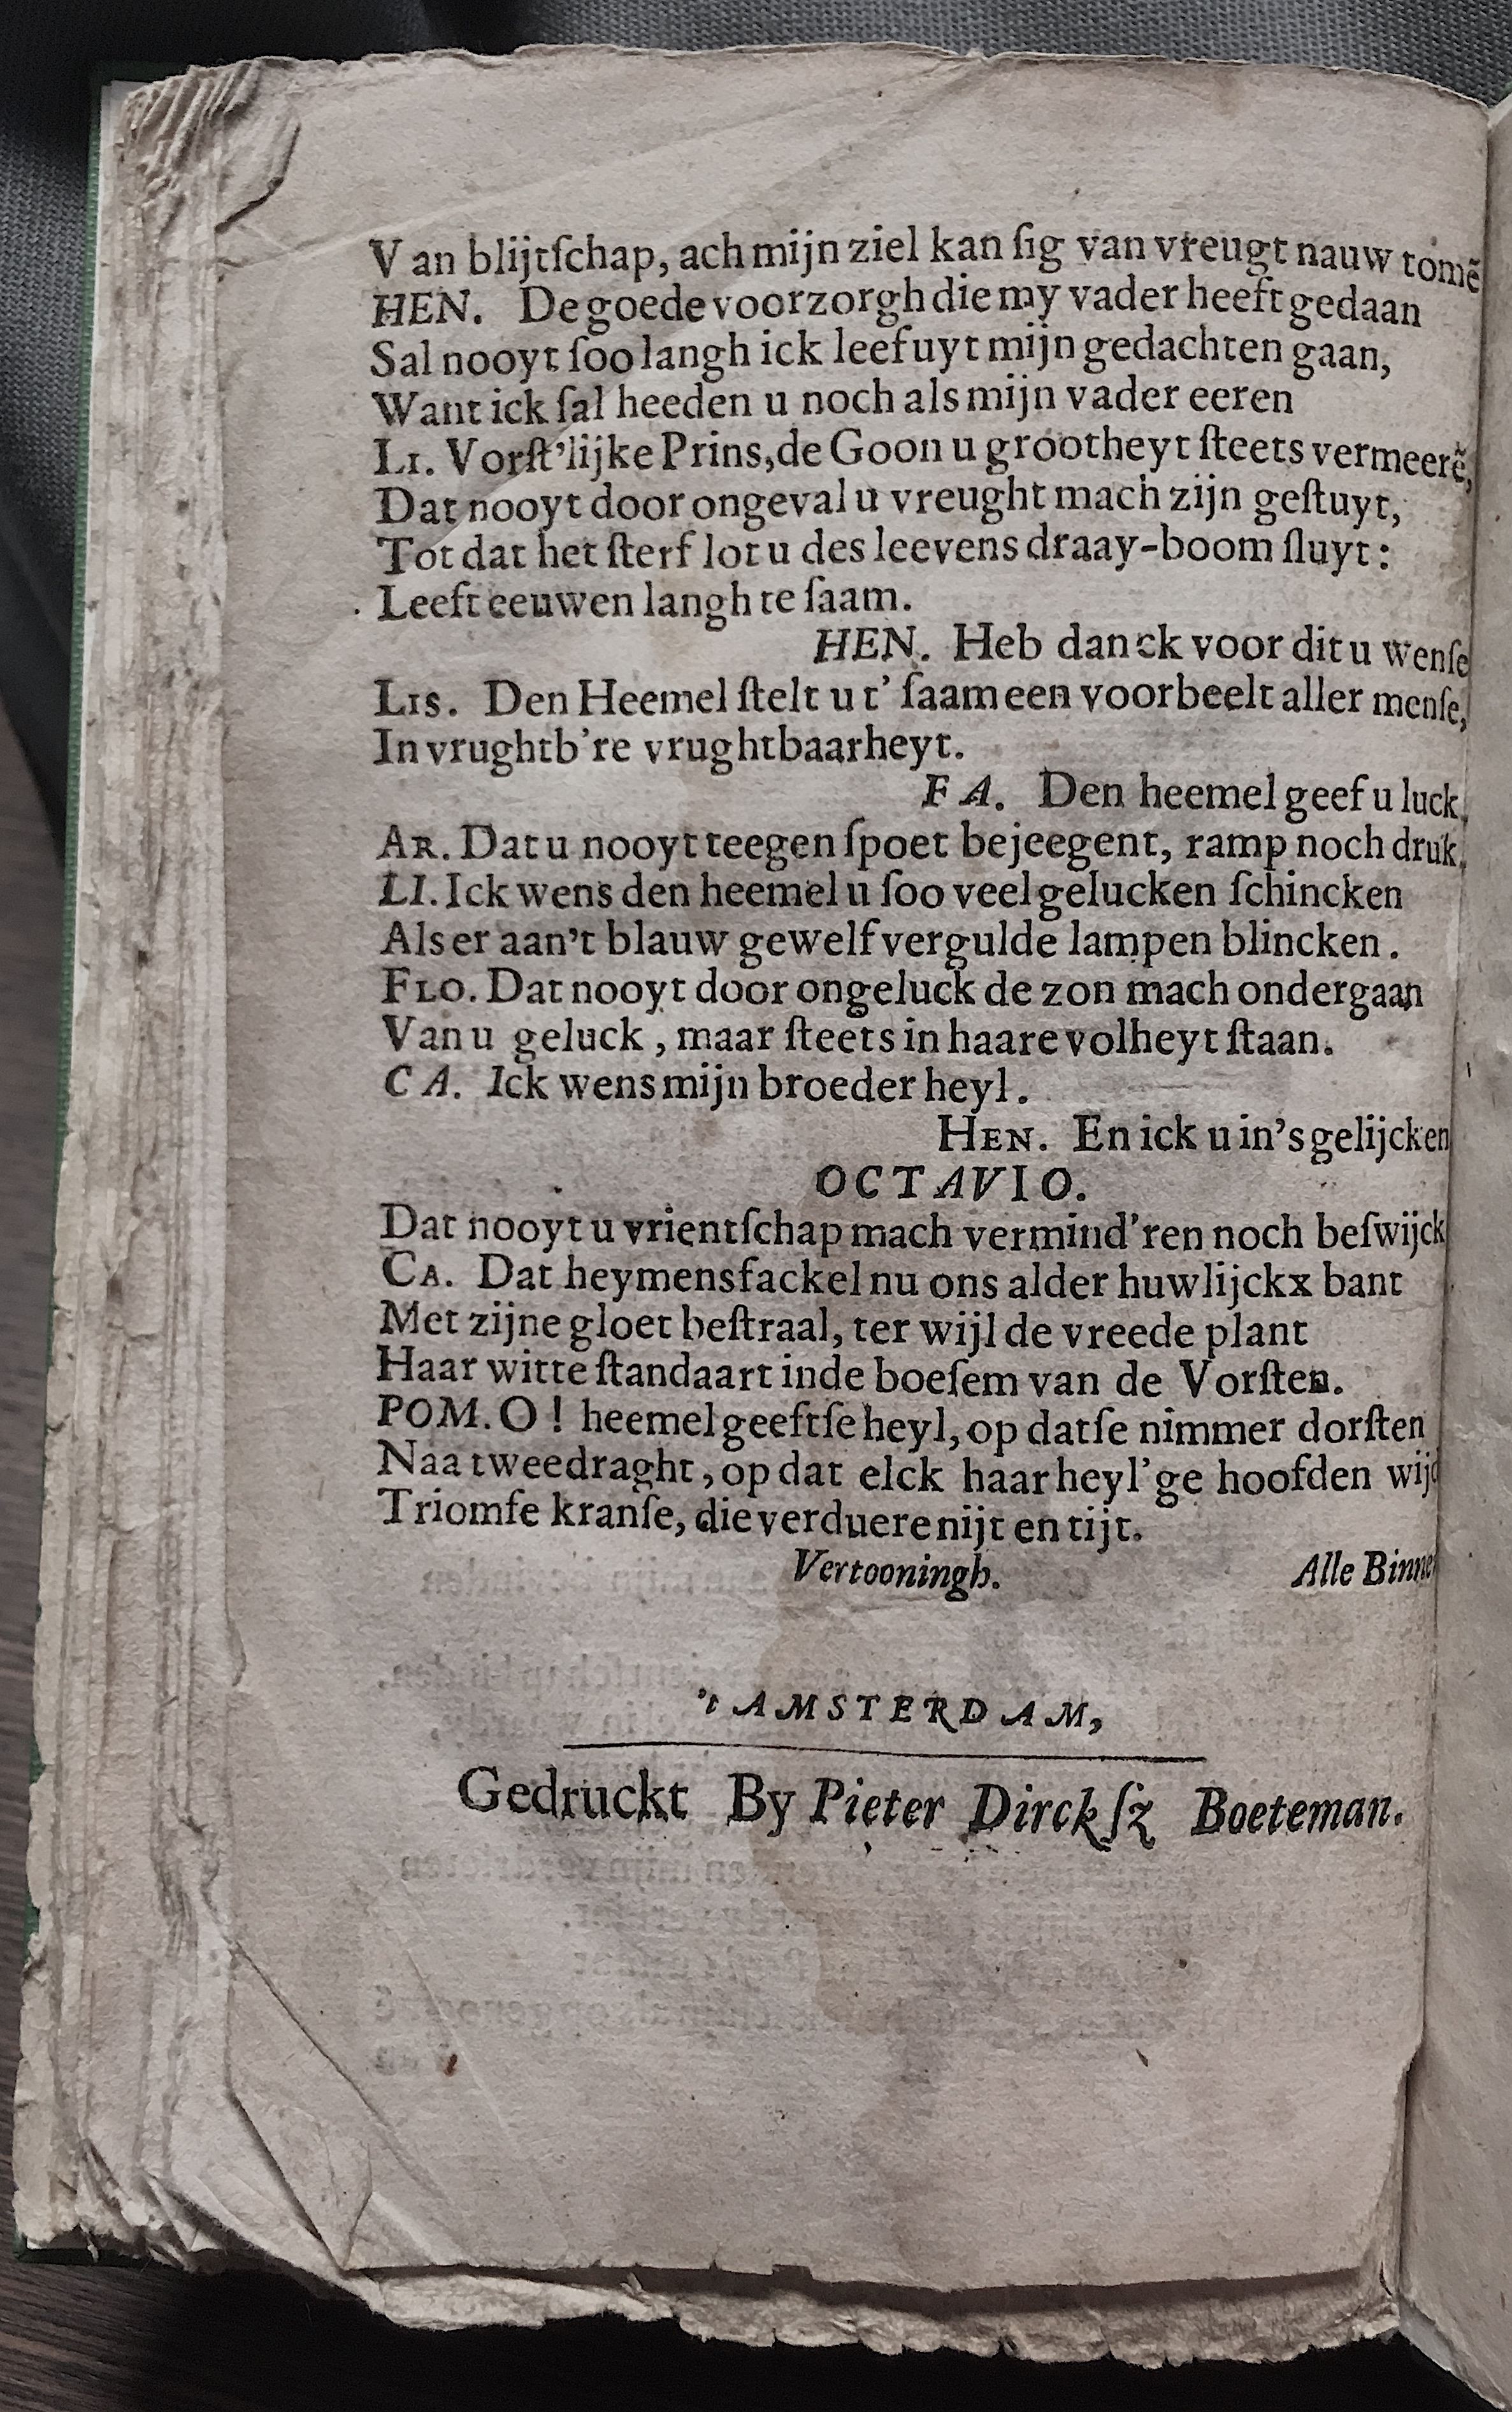 Van blijtſchap, ach mijn ziel kan ſig van vreugt nauw tomē
HEN. De goede voorzorgh die my vader heeft gedaan
Sal nooyt ſoo langh ick leef uyt mijn gedachten gaan,
Want ick ſal heeden u noch als mijn vader eeren
LI. Vorſt'lijke Prins, de Goon u grootheyt ſteets vermeerē,
Dat nooyt door ongeval u vreught mach zijn geſtuyt,
Tot dat het ſterf lot u des leevens draay-boom ſluyt:
Leeft eeuwen langh te ſaam.
HEN. Heb danck voor dit u wenſe
LIS. Den Heemel ſtelt u t' ſaam een voorbeelt aller menſe,
In vrughtb're vrughtbaarheyt.
FA. Den heemel geef u luck,
AR. Dat u nooyt teegen ſpoet bejeegent, ramp noch druk,
LI. Ick wens den heemel u ſoo veel gelucken ſchincken
Als er aan't blauw gewelf vergulde lampen blincken.
FLO. Dat nooyt door ongeluck de zon mach ondergaan
Van u geluck, maar ſteets in haare volheyt ſtaan.
CA. Ick wens mijn broeder heyl.
HEN. En ick u in's gelijcken
OCTAVIO.
Dat nooyt u vrientſchap mach vermind'ren noch beſwijck
CA. Dat heymens fackel nu ons alder huwlijckx bant
Met zijne gloet beſtraal, ter wijl de vreede plant
Haar witte ſtandaart inde boeſem van de Vorſten.
POM. O! heemel geeft ſe heyl, op datſe nimmer dorſten
Naa tweedraght, op dat elck haar heyl'ge hoofden wijd
Triomfe kranſe, die verduere nijt en tijt.
Vertooningh. Alle Binne
't AMSTERDAM,
Gedruckt By Pieter Dirckſz Boeteman.